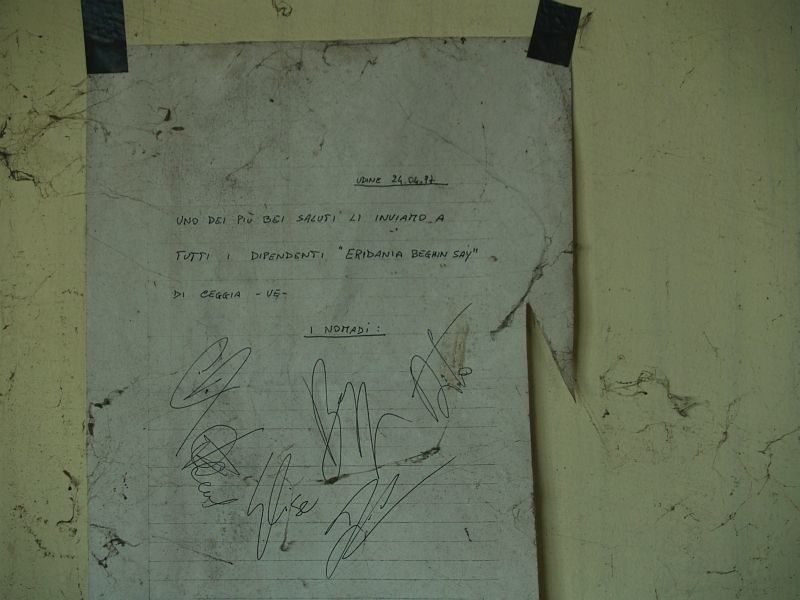 UDINE 24.04.97
UNO DEI PIÙ BEI SALUTI LI INVIAMO A
TUTTI I DIPENDENTI "ERIDANIA BEGHIN SAY"
DI CEGGIA - VE -
I NOMADI: